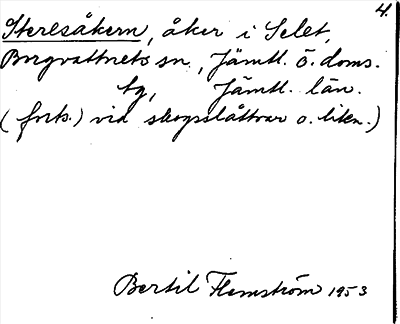 4.
Sterlsåkern, åker i Selet,
Borgvattnets sn, Jämtl. ö. doms.
tg, Jämtl. län.
(forts.) vid skogsslåttrar o. likn.)
Bertil Flemström 1953